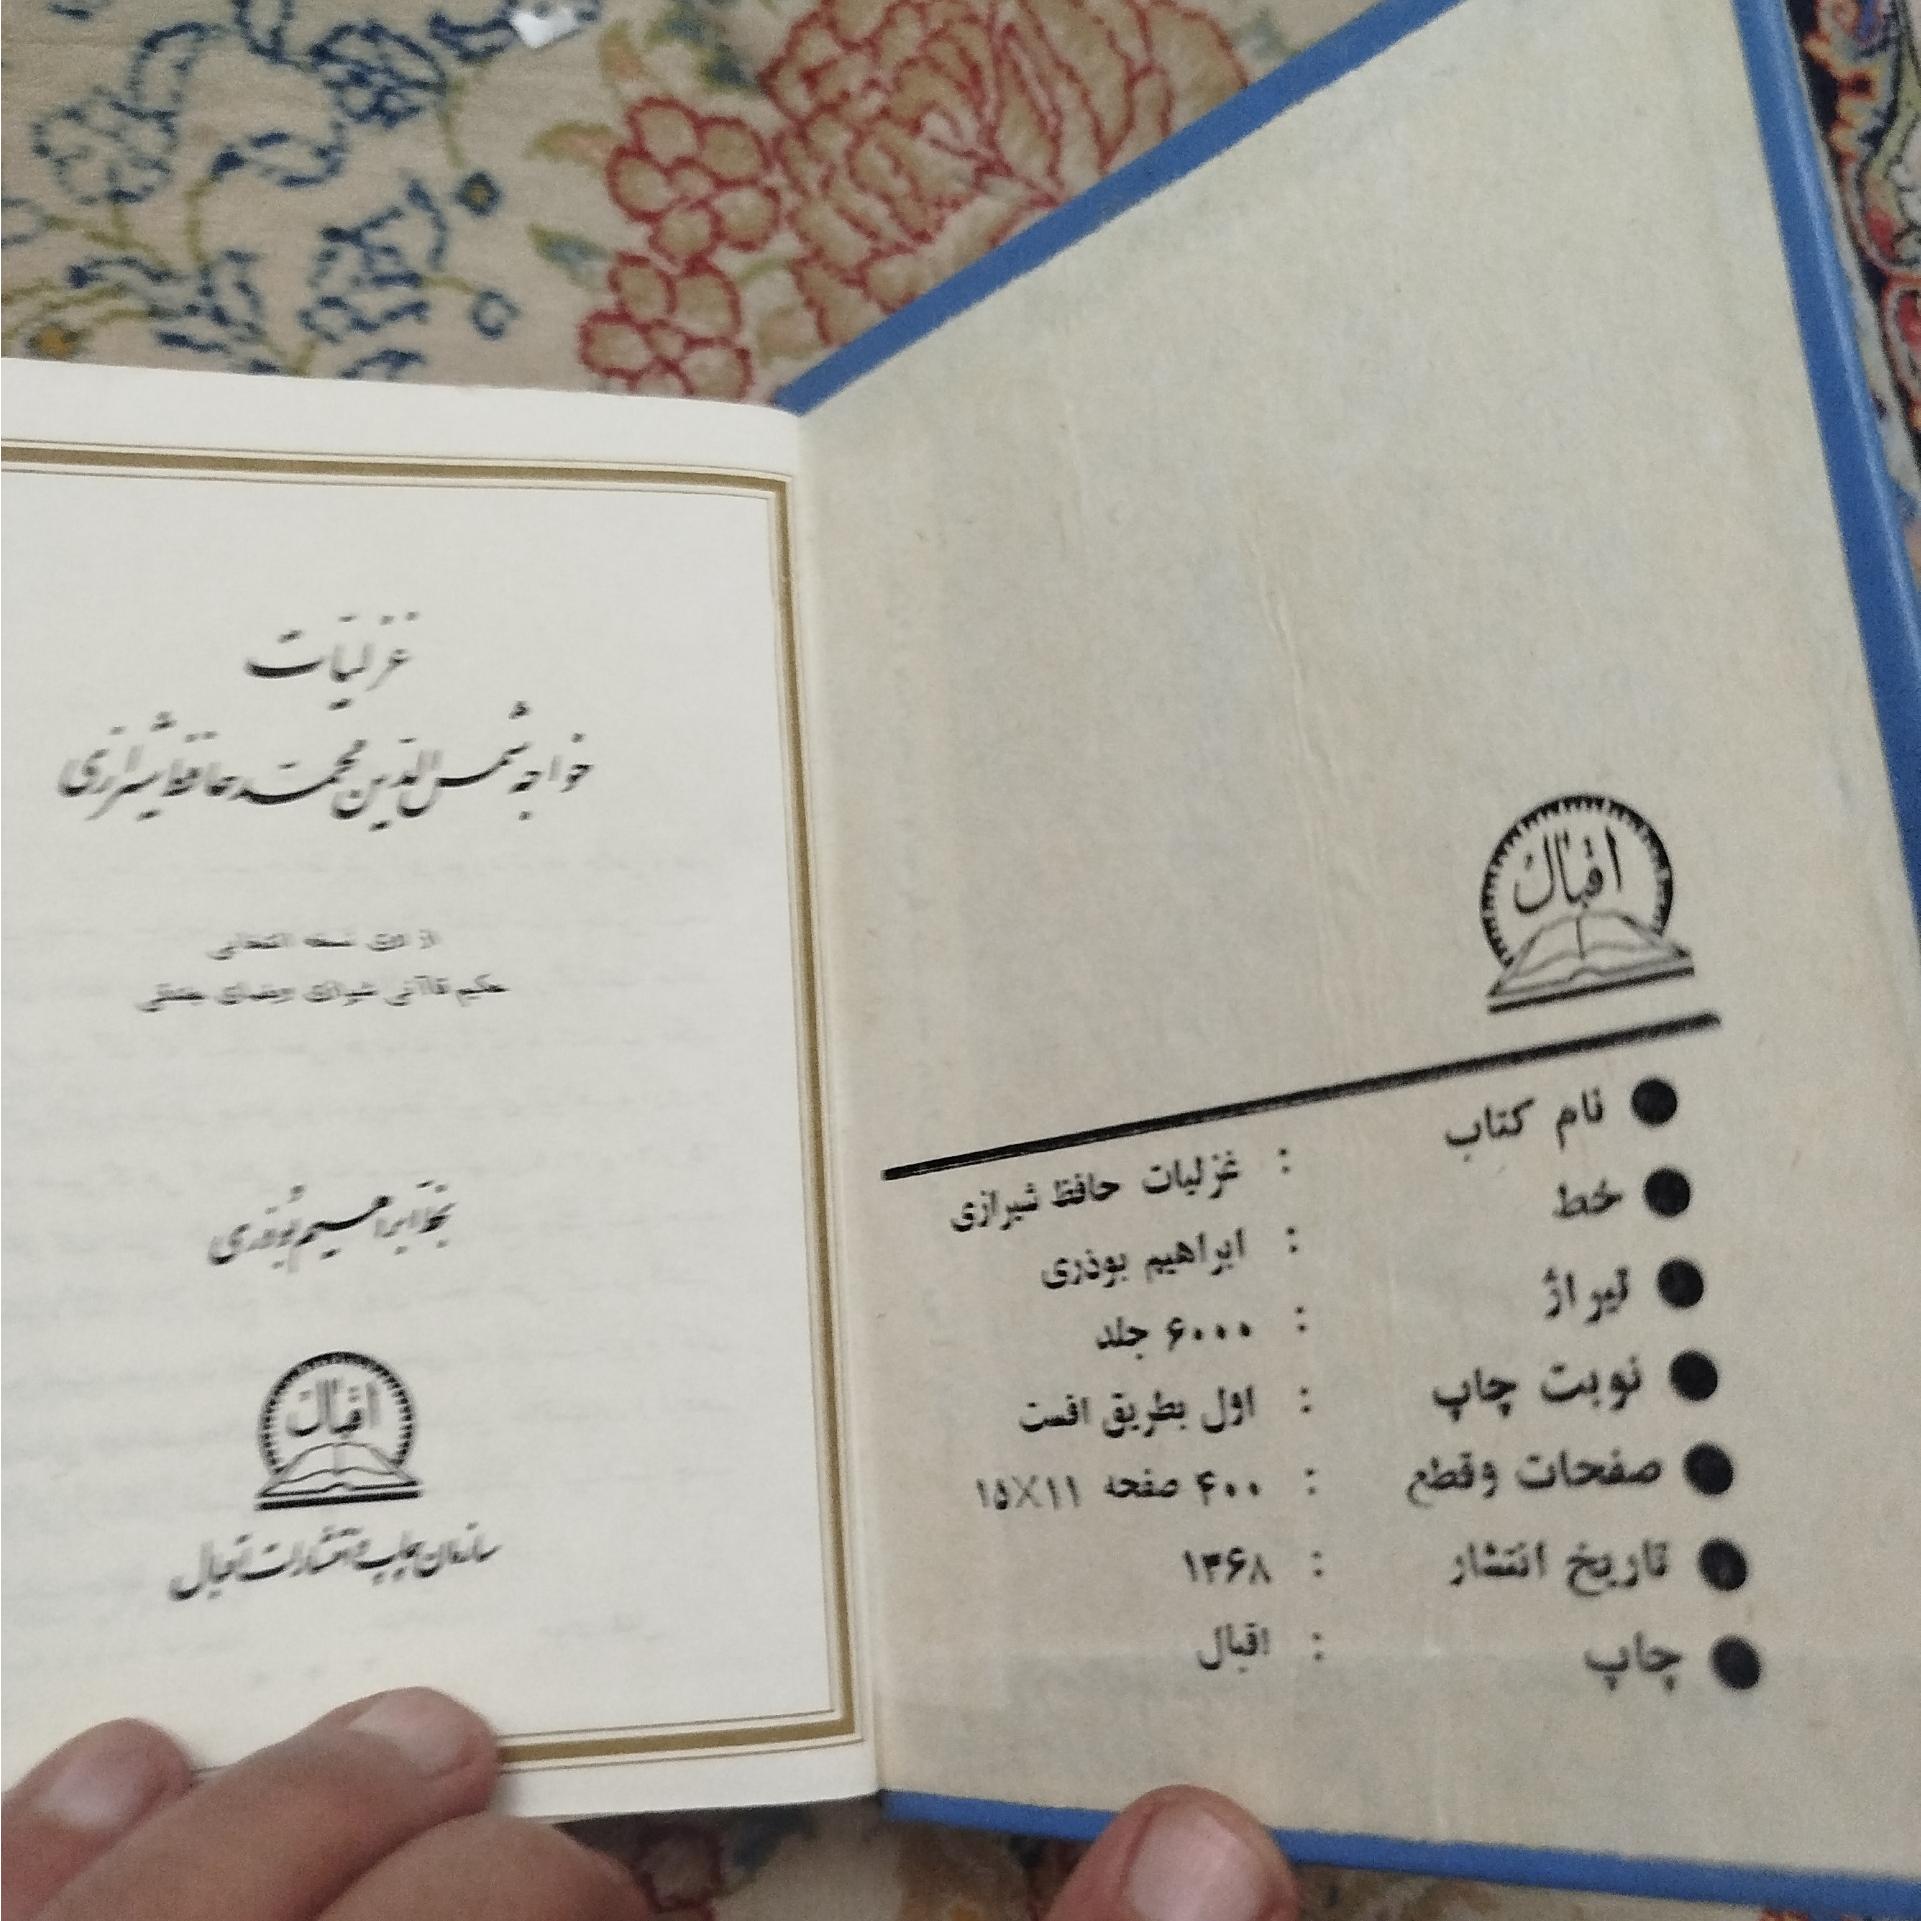 اقبال
نام کتاب : غزلیات حافظ شیرازی
خط : ابراهیم بوذری
تیراژ : ۶۰۰۰ جلد
نوبت چاپ : اول بطریق افست
صفحات وقطع : ۴۰۰ صفحه ۱۱×۱۵
تاریخ انتشار : ۱۳۶۸
چاپ : اقبال
غزلیات
خواجه شمس الدین محمد حافظ شیرازی
از روی نسخه انتخابی
حکیم قاآنی شیرازی
بخط ابراهیم بوذری
اقبال
سازمان چاپ و انتشارات اقبال